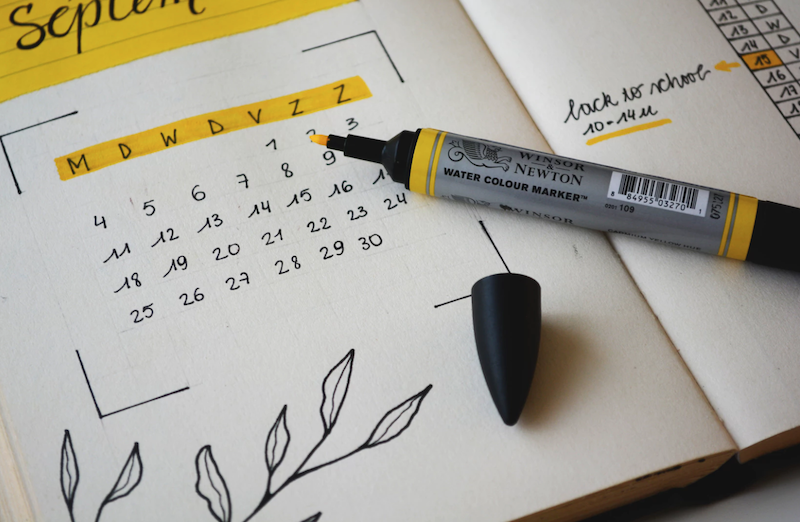 Septem
M D W D V Z Z
1 2 3
4 5 6 7 8 9
11 12 13 14 15 16
18 19 20 21 22 23 24
25 26 27 28 29 30
WINSOR
&
NEWTON
WATER COLOUR MARKER™
8 84955 03270 1
109
WINSOR
11 D
12 D
13 W
14 D
15 V
16 Z
17
back to school
10-14u